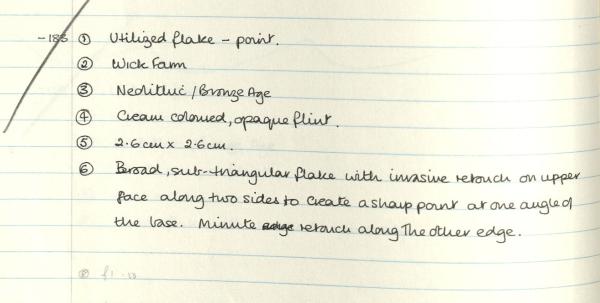 -183 ① Utilized flake - point.
② Wick Farm
③ Neolithic/Bronze Age
④ Cream coloured, opaque flint.
⑤ 2.6cm x 2.6cm.
⑥ Broad, sub-triangular flake with invasive retouch on upper
face along two sides to create a sharp point at one angle of
the base. Minute edge retouch along the other edge.